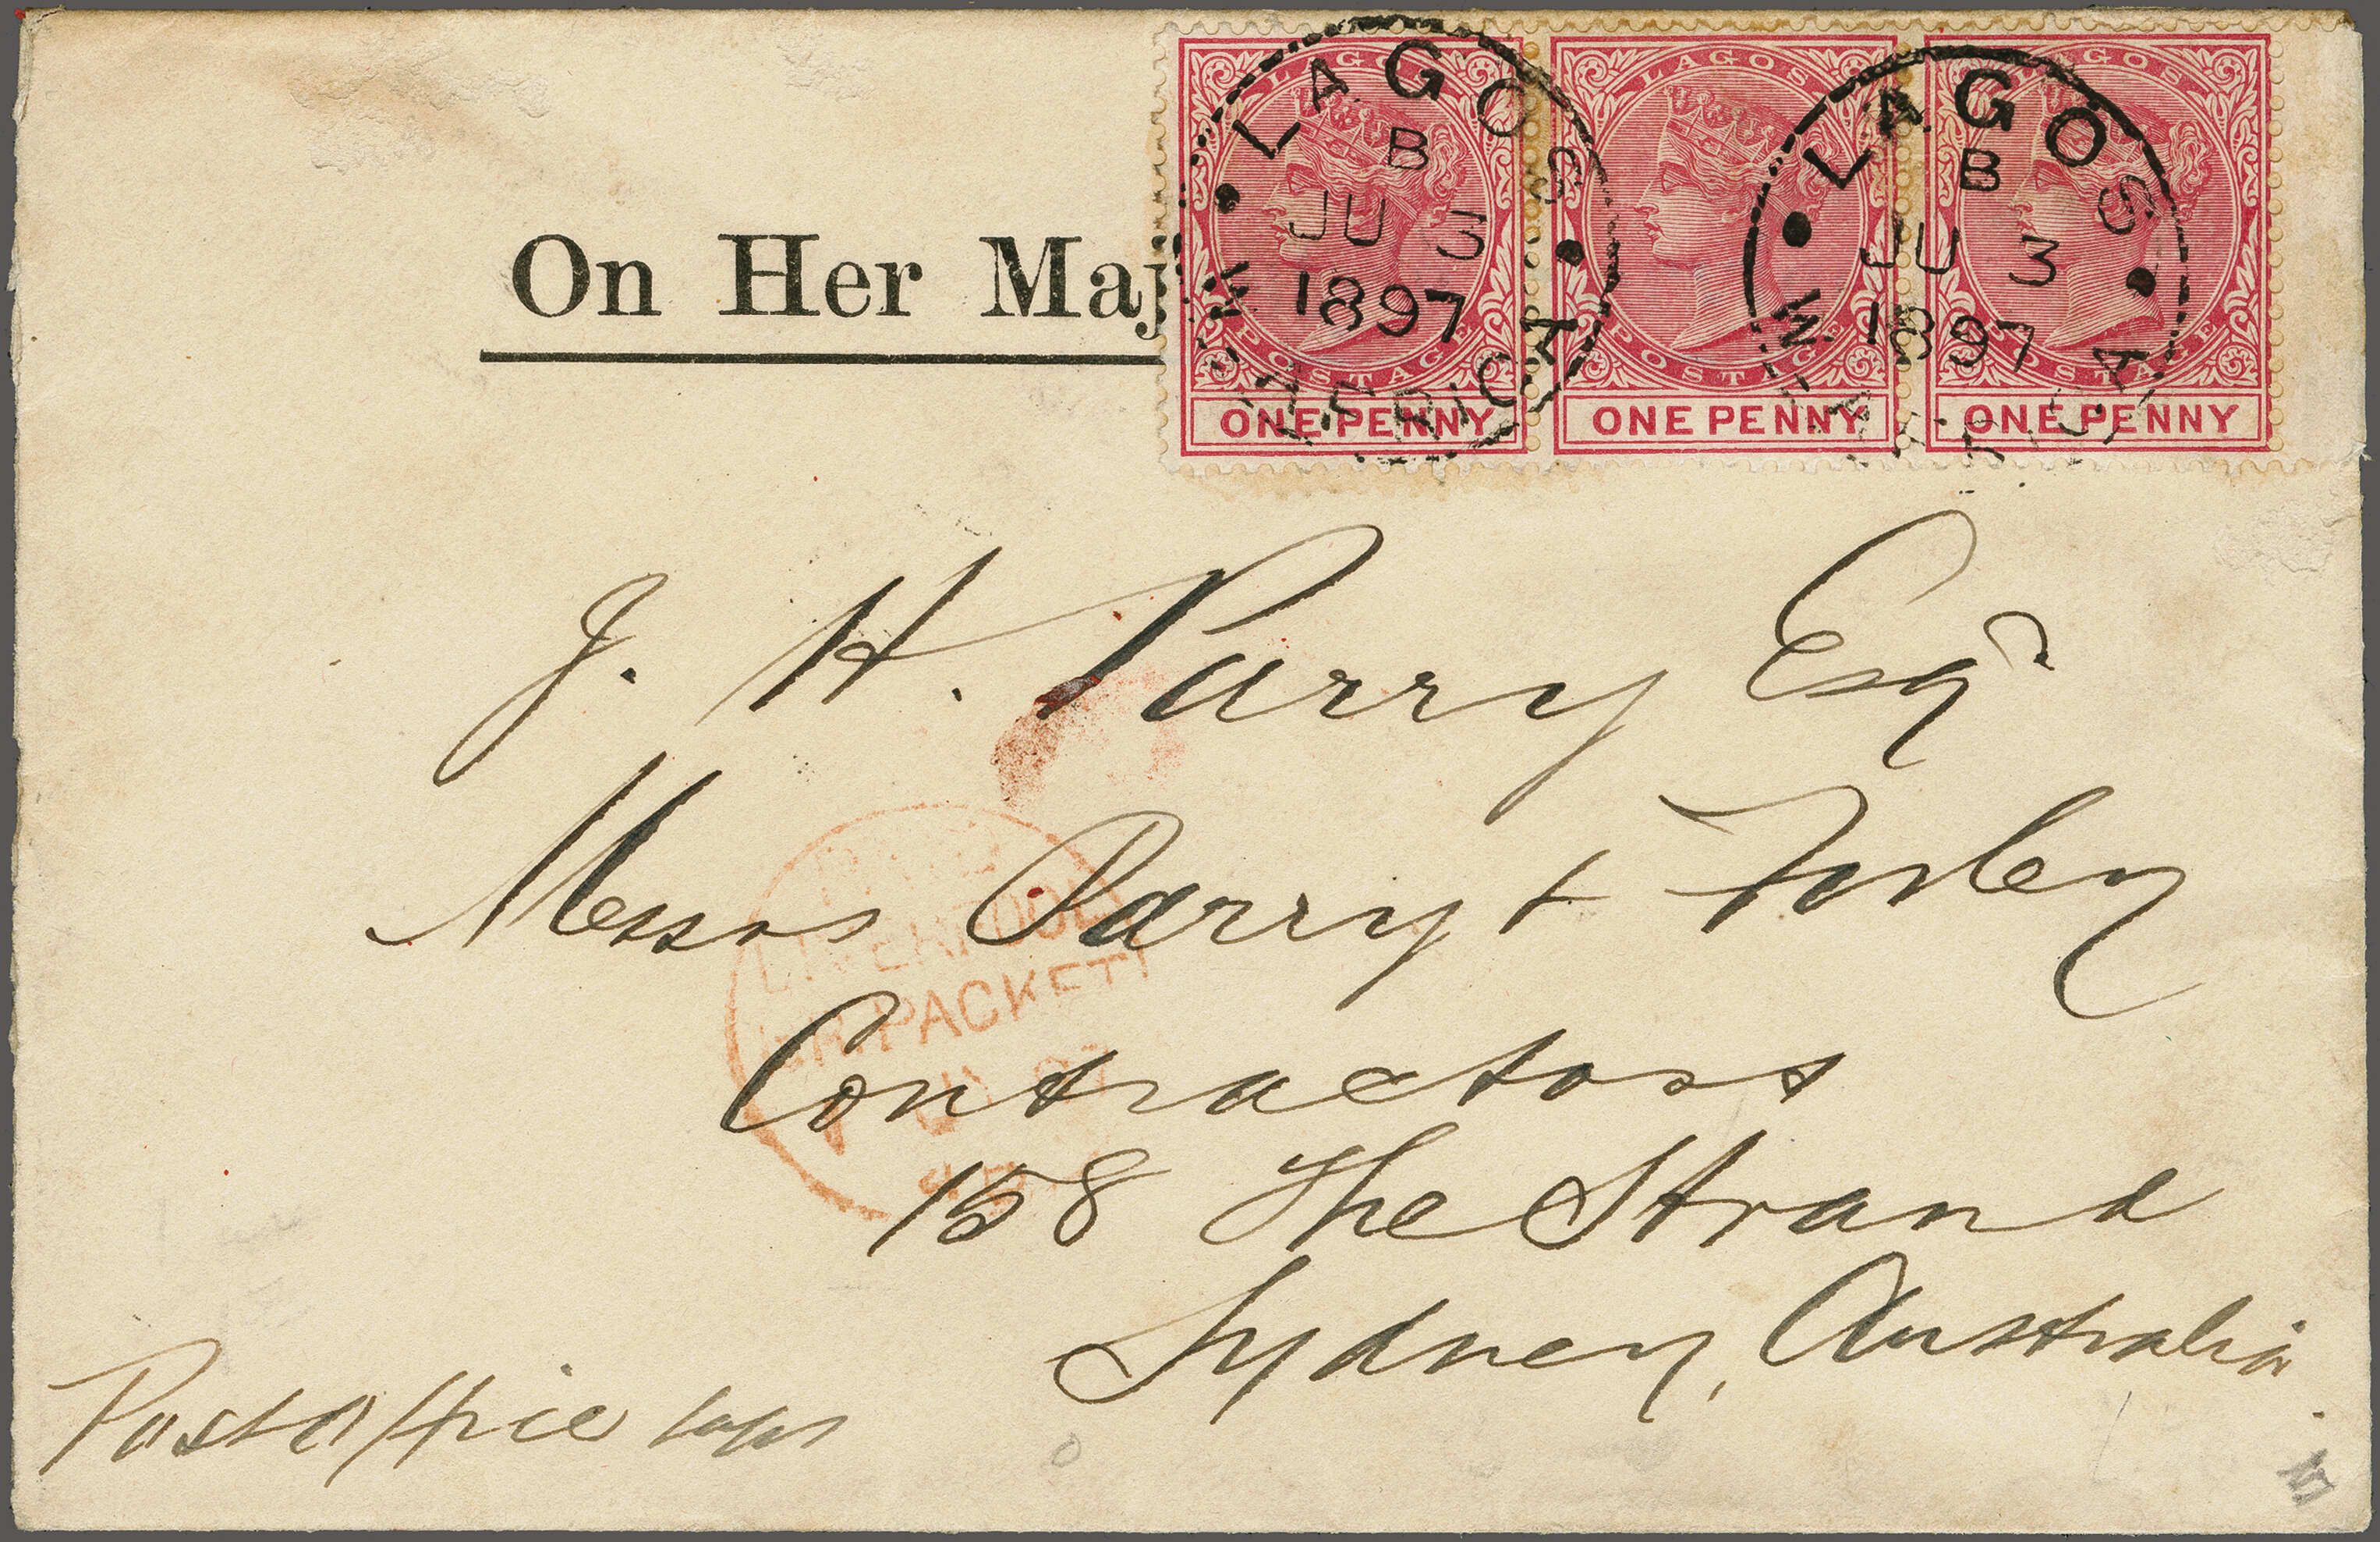 LAGOS LAGOS LAGOS
POSTAGE POSTAGE POSTAGE
ONE PENNY ONE PENNY ONE PENNY
LAGOS
B
JU 3
1897
W. AFRICA
LAGOS
B
JU 3
1897
W. AFRICA
On Her Maj
J. H. Parry Esqr
Messrs Parry +
Contractors
158 The Strand
Sydney, Australia
Post Office
LIVERPOOL
BR. PACKET
97